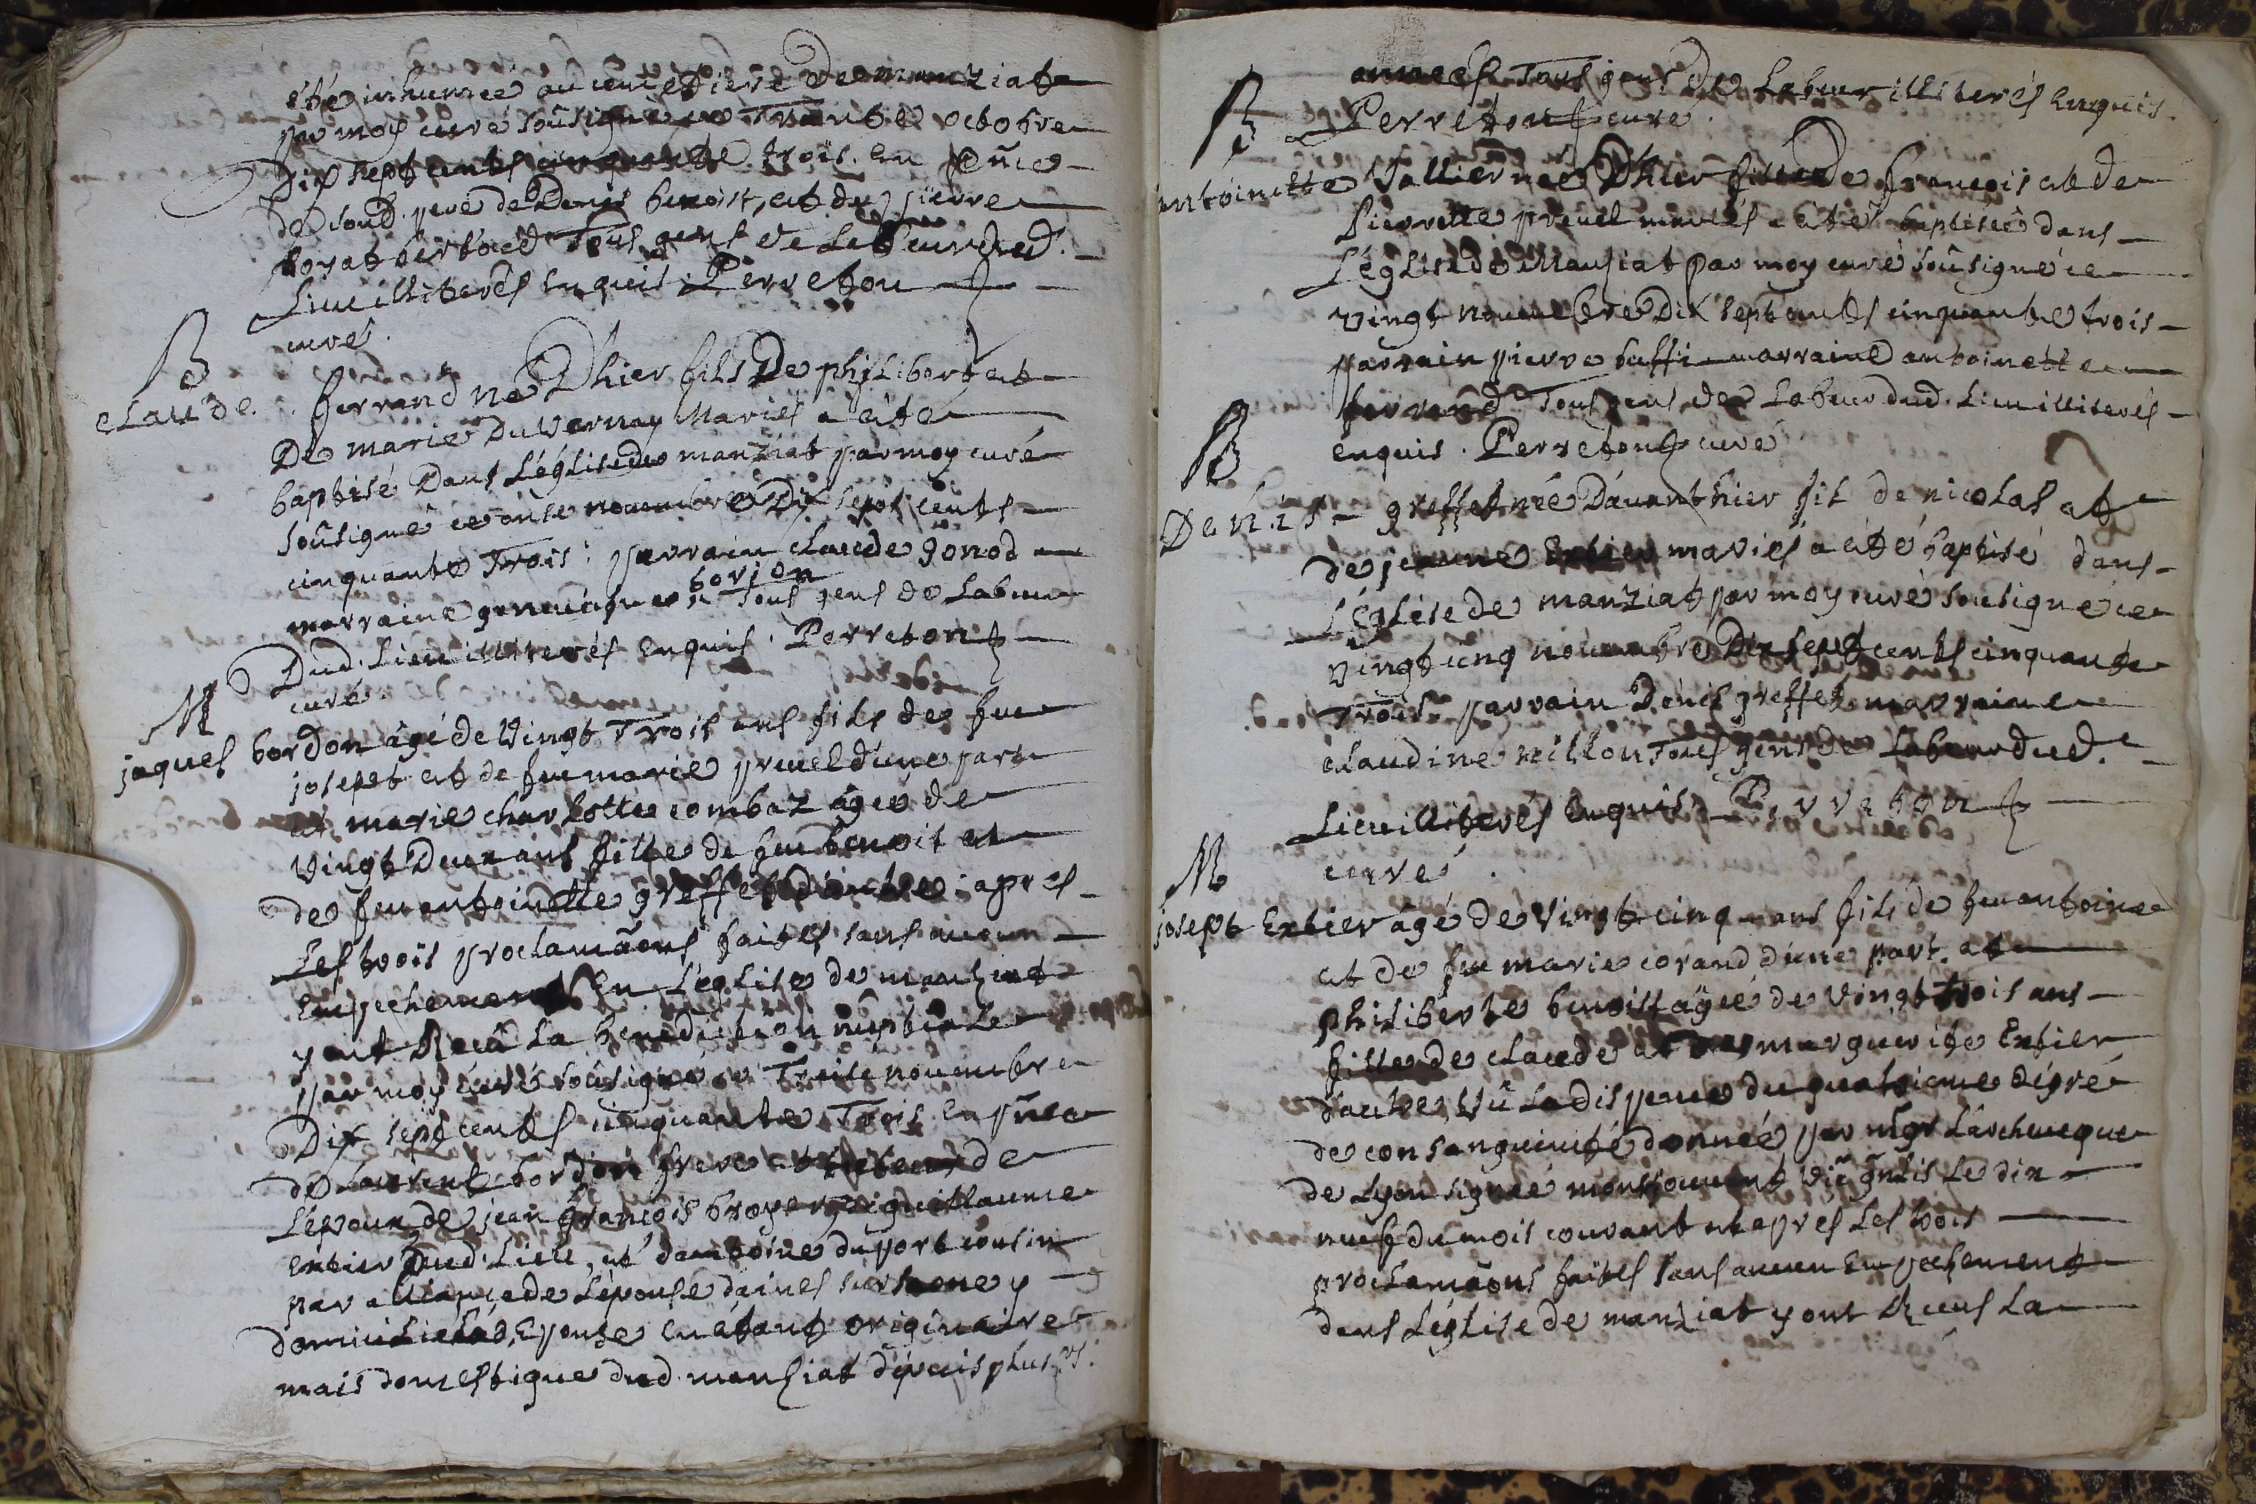 été inhumée au cimetiere de manziat
par moy curé soûsigné ce Trente octobre
Dix sept cents cinquante trois. en pñce
de soud. pere de Denis benoist, et de pierre
boyat bertôed Tous gens de Labeur dud.
Lieu illiterés Enquis. Perreton
curé.
B
claude. ferrand né D'hier fils De philibert et
De marie Duvernay Mariés a été
baptisé Dans L'église de manziat par moy curé
soûsigné ce onse novembre Dix sept cents
cinquante Trois. parrain claude gonod
marraine genevieque borjon Tous gens de Labeur
Dud. Lieu illiterés Enquis. Perreton
curé.
M
jaques bordon âgé de vingt Trois ans fils de feu
josept et de feu marie pruel d'une part
et marie charlotte combaz âgée de
vingt Deux ans fille de feu benoit et
de feu antoinette greffet d'autre. apres
Les trois proclamãons faites sans aucun
Empechement En L'église de manziat
y ont Reçû La benediction nuptiale
par moy curé soûsigné ce Treise novembre
Dix sept cents cinquante Trois en pñce
de Laurent bordon frere et de
L'epoux de jean françois broyer de guillaume
Extier Dud. Lieu, et d'antoine duport cousin
par alliance de L'épouse
domicilié Lad. Epouse En étant originaire
mais domestique dud. manziat depuis plusrs.
années Tous gens De Labeur illiterés Enquis.
Perreton curé.
B
antoinette Vallier née D'hier fille de françois et de
Pierrette pruel mariés a été baptisée dans
L'église de Manziat par moy curé soûsigné ce
vingt novembre Dix sept cents cinquante trois
parrain pierre buffi marraine antoinette
ferrand Tous gens de Labeur dud. Lieu illiterés
enquis. Perreton curé
B
Denis greffet née Davanthier fil de nicolas et
de jeanne Extier mariés a été baptisé dans
L'église de manziat par moy curé soûsigné ce
vingt cinq novembre Dix sept cents cinquante
Trois. parrain Denis greffet marraine
claudine nillon Tous gens de Labeur dud.
Lieu illiterés Enquis Perreton
curé.
M
josept Extier âgé de vingt cinq ans fils de feu antoine
et de feu marie corand d'une part. et
philiberte benoist âgée de vingt trois ans
fille de claude et de marguerite Extier
d'autre, vû La dispense du quatrieme dégré
de consanguinité donnée par mgr L'archeveque
de Lyon signée montjouvent vic gnlis Le dix
neuf du mois courant et apres Les trois
proclamãons faites sans aucun Empechement
dans L'église de manziat y ont Receus La